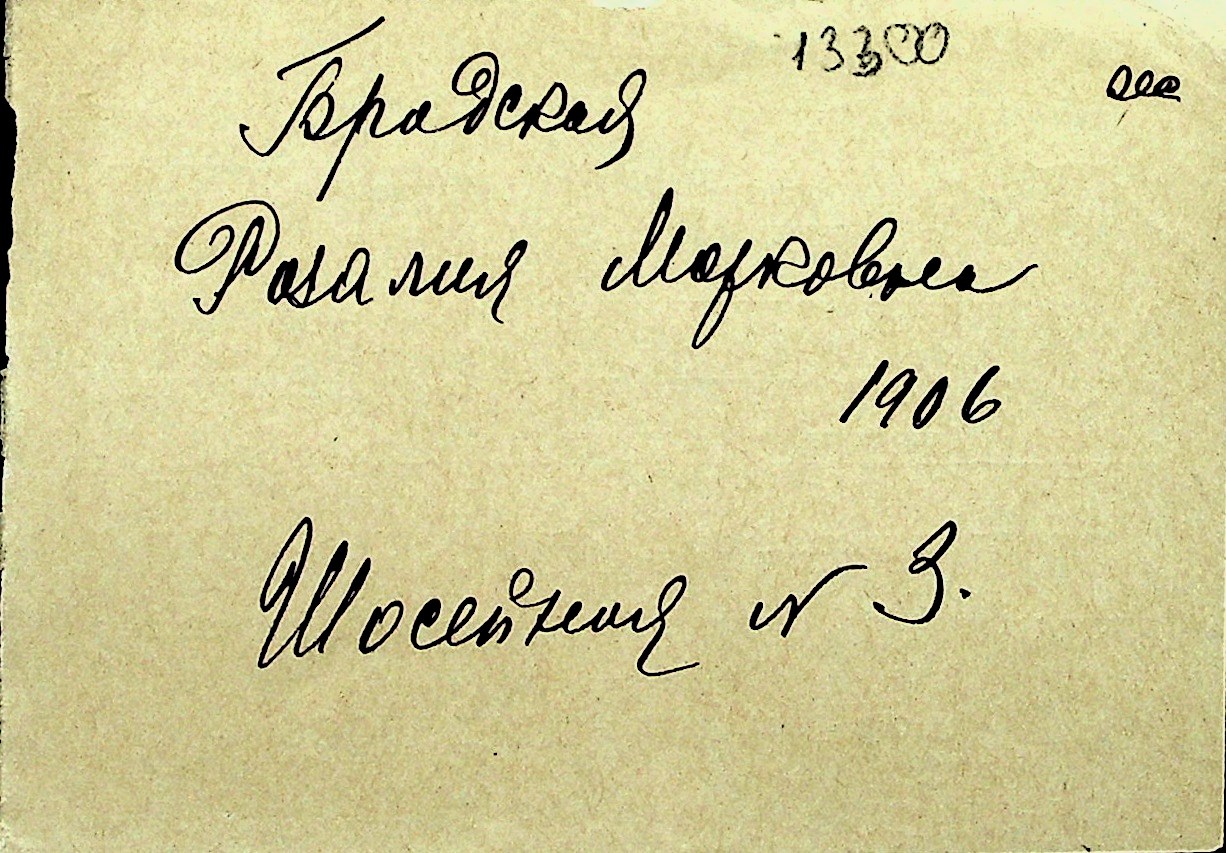 13300
Бродская
Розалия Марковна
1906
Шосейная № 3.